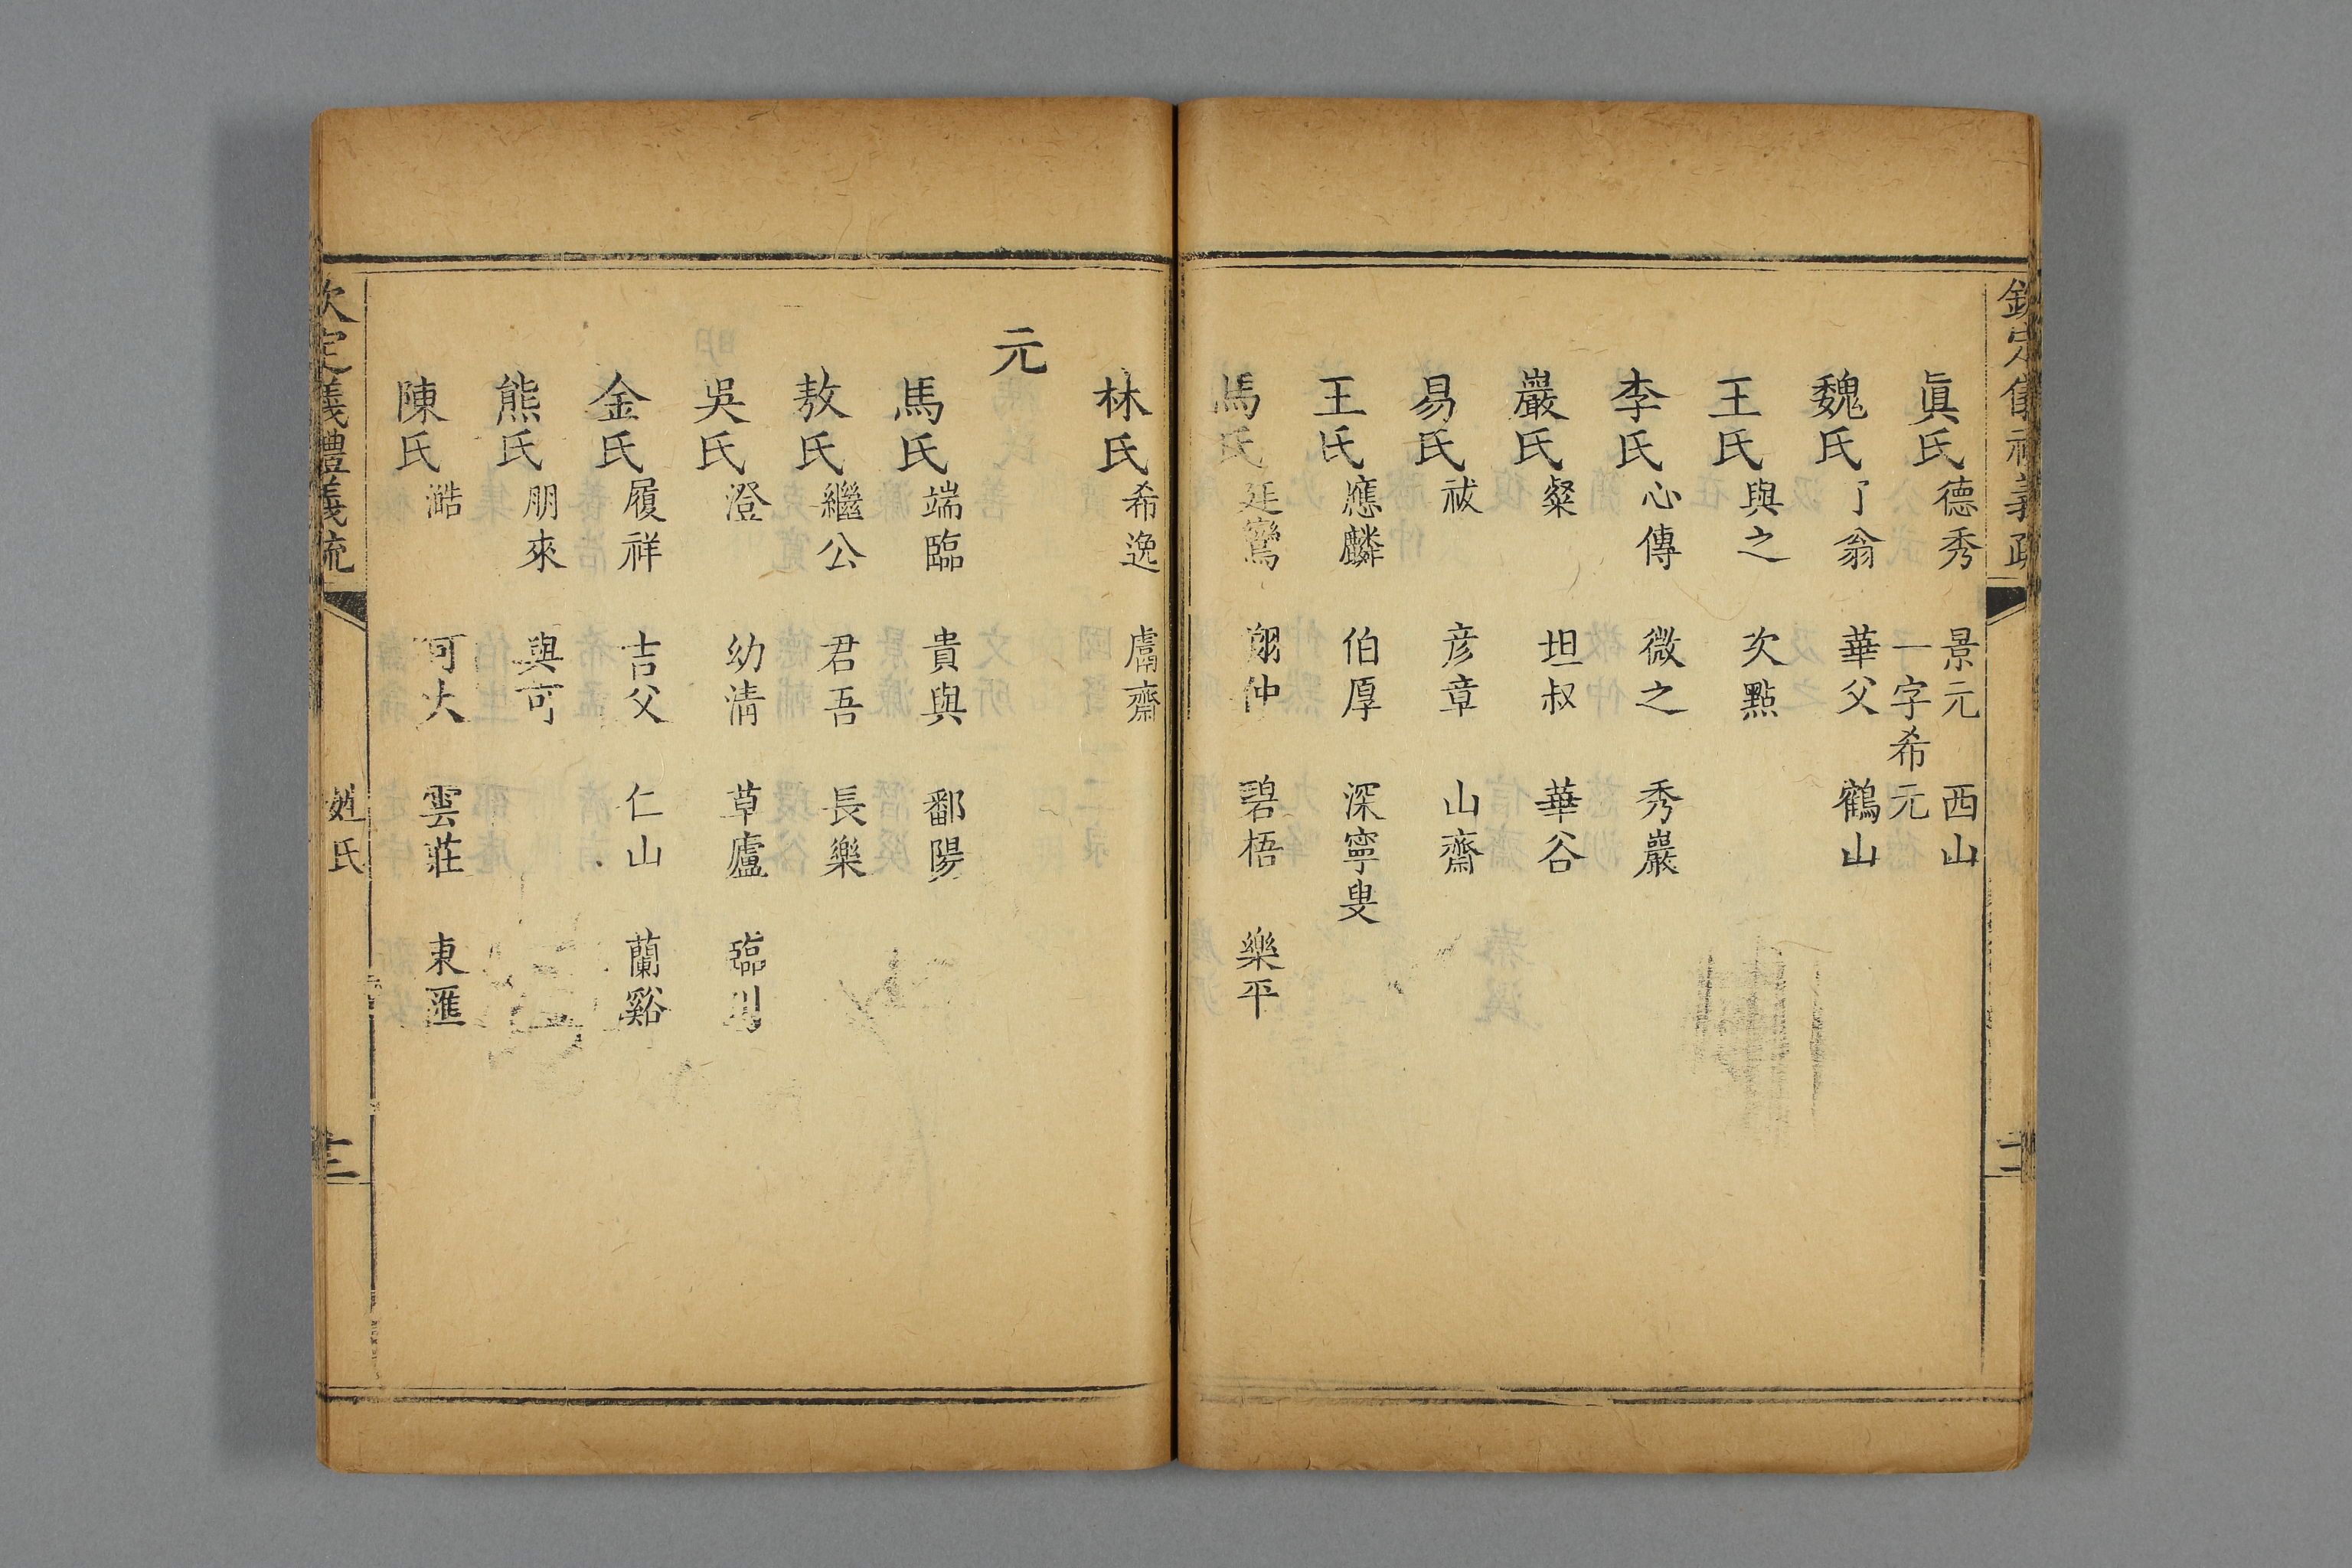 眞氏 德秀 景元 一字希元 西山
魏氏 了翁 華父 鶴山
王氏 與之 次點
李氏 心傳 微之 秀巖
嚴氏 粲 坦叔 華谷
易氏 祓 彦章 山齋
王氏 應麟 伯厚 深寧叟
馬氏 廷鸞 翔仲 碧梧 樂平
林氏 希逸 鬳齋
元
馬氏 端臨 貴與 鄱陽
敖氏 繼公 君吾 長樂
吳氏 澄 幼清 草廬 臨川
金氏 履祥 吉父 仁山 蘭谿
熊氏 朋來 與可
陳氏 澔 可大 雲莊 東滙
欽定儀禮義疏 姓氏 十二